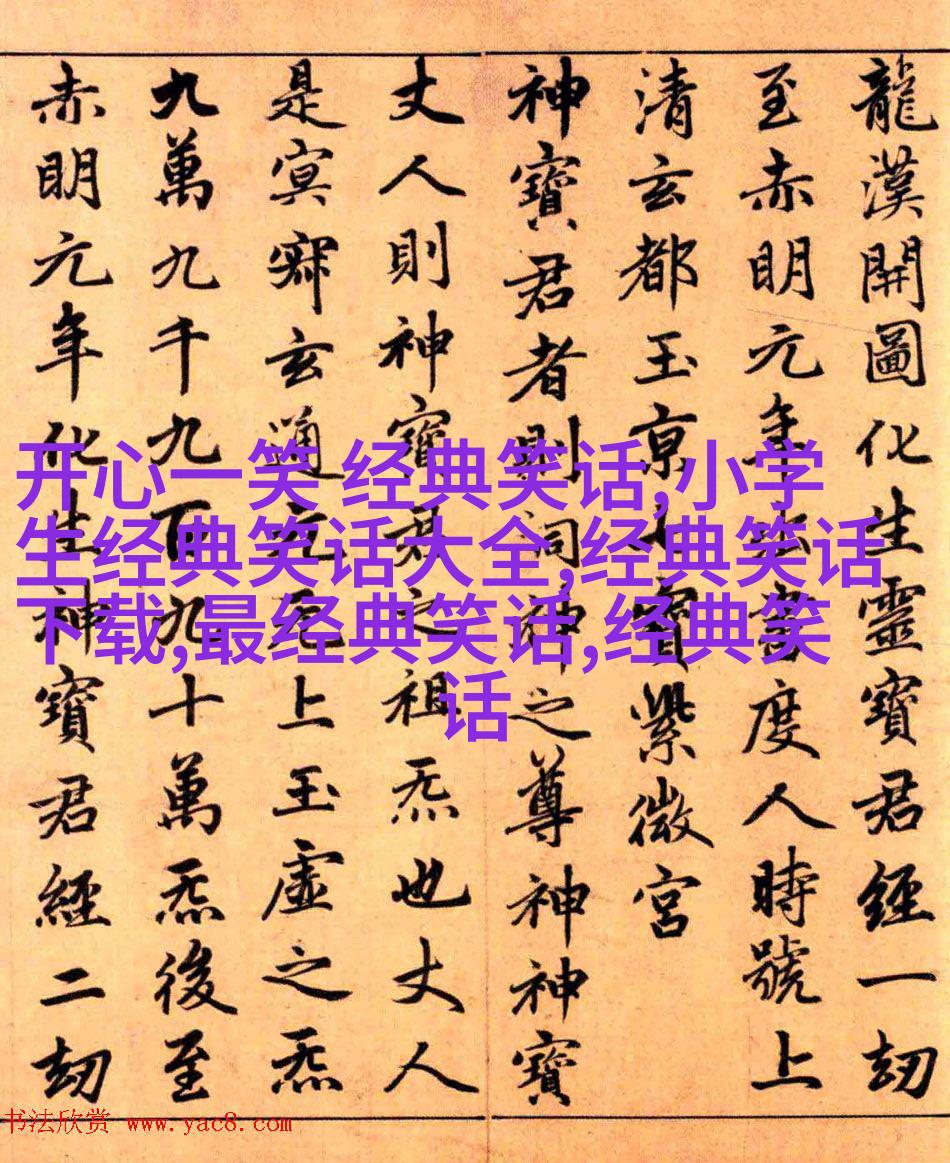 龍漢開圖化生靈寶君經一劫
至赤明元年出書度人時號上
清玄都玉京七寶紫微宮
神寶君者則洞神之尊神神寶
丈人則神寶君之祖炁也丈人
是冥寂玄通元无上玉虛之炁
九萬九千九百九十萬炁後至
赤明元年化生神寶君經二劫
开心一笑 经典笑话,小学
生经典笑话大全,经典笑话
下载,最经典笑话,经典笑
话
书法欣赏 www.yac8.com